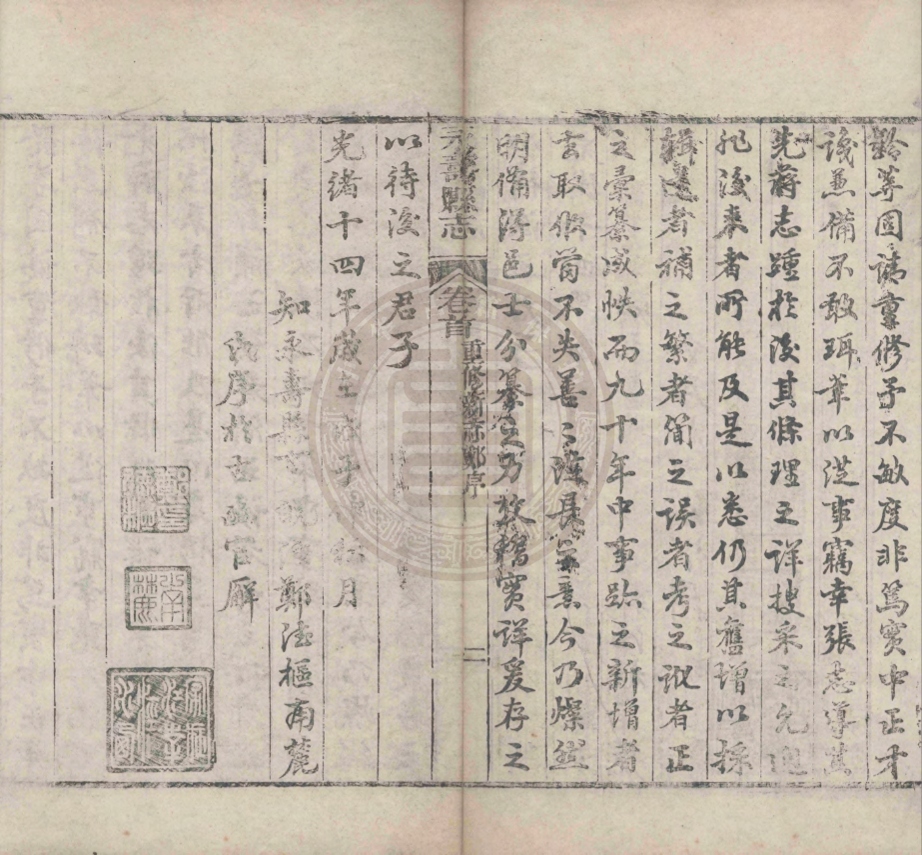 齡等固請重修予不敏度非篤實中正才
識兼備不敢珥筆以從事竊幸張志導其
先蔣志踵於後其條理之詳搜采之允
非後来者所能及是以悉仍其舊增以採
輯遺者補之繁者簡之误者考之訛者正
之彙纂成帙而九十年中事跡之新增者
去取俱當不失善善従長之意今乃燦然
明備得邑士分纂之力效稽實詳爰存之
永壽縣志 卷首 重修新志鄭序 二
以待後之君子
光緒十四年歲在戊子月
知永壽縣事鄭德樞南麓
序於古豳官廨
南麓